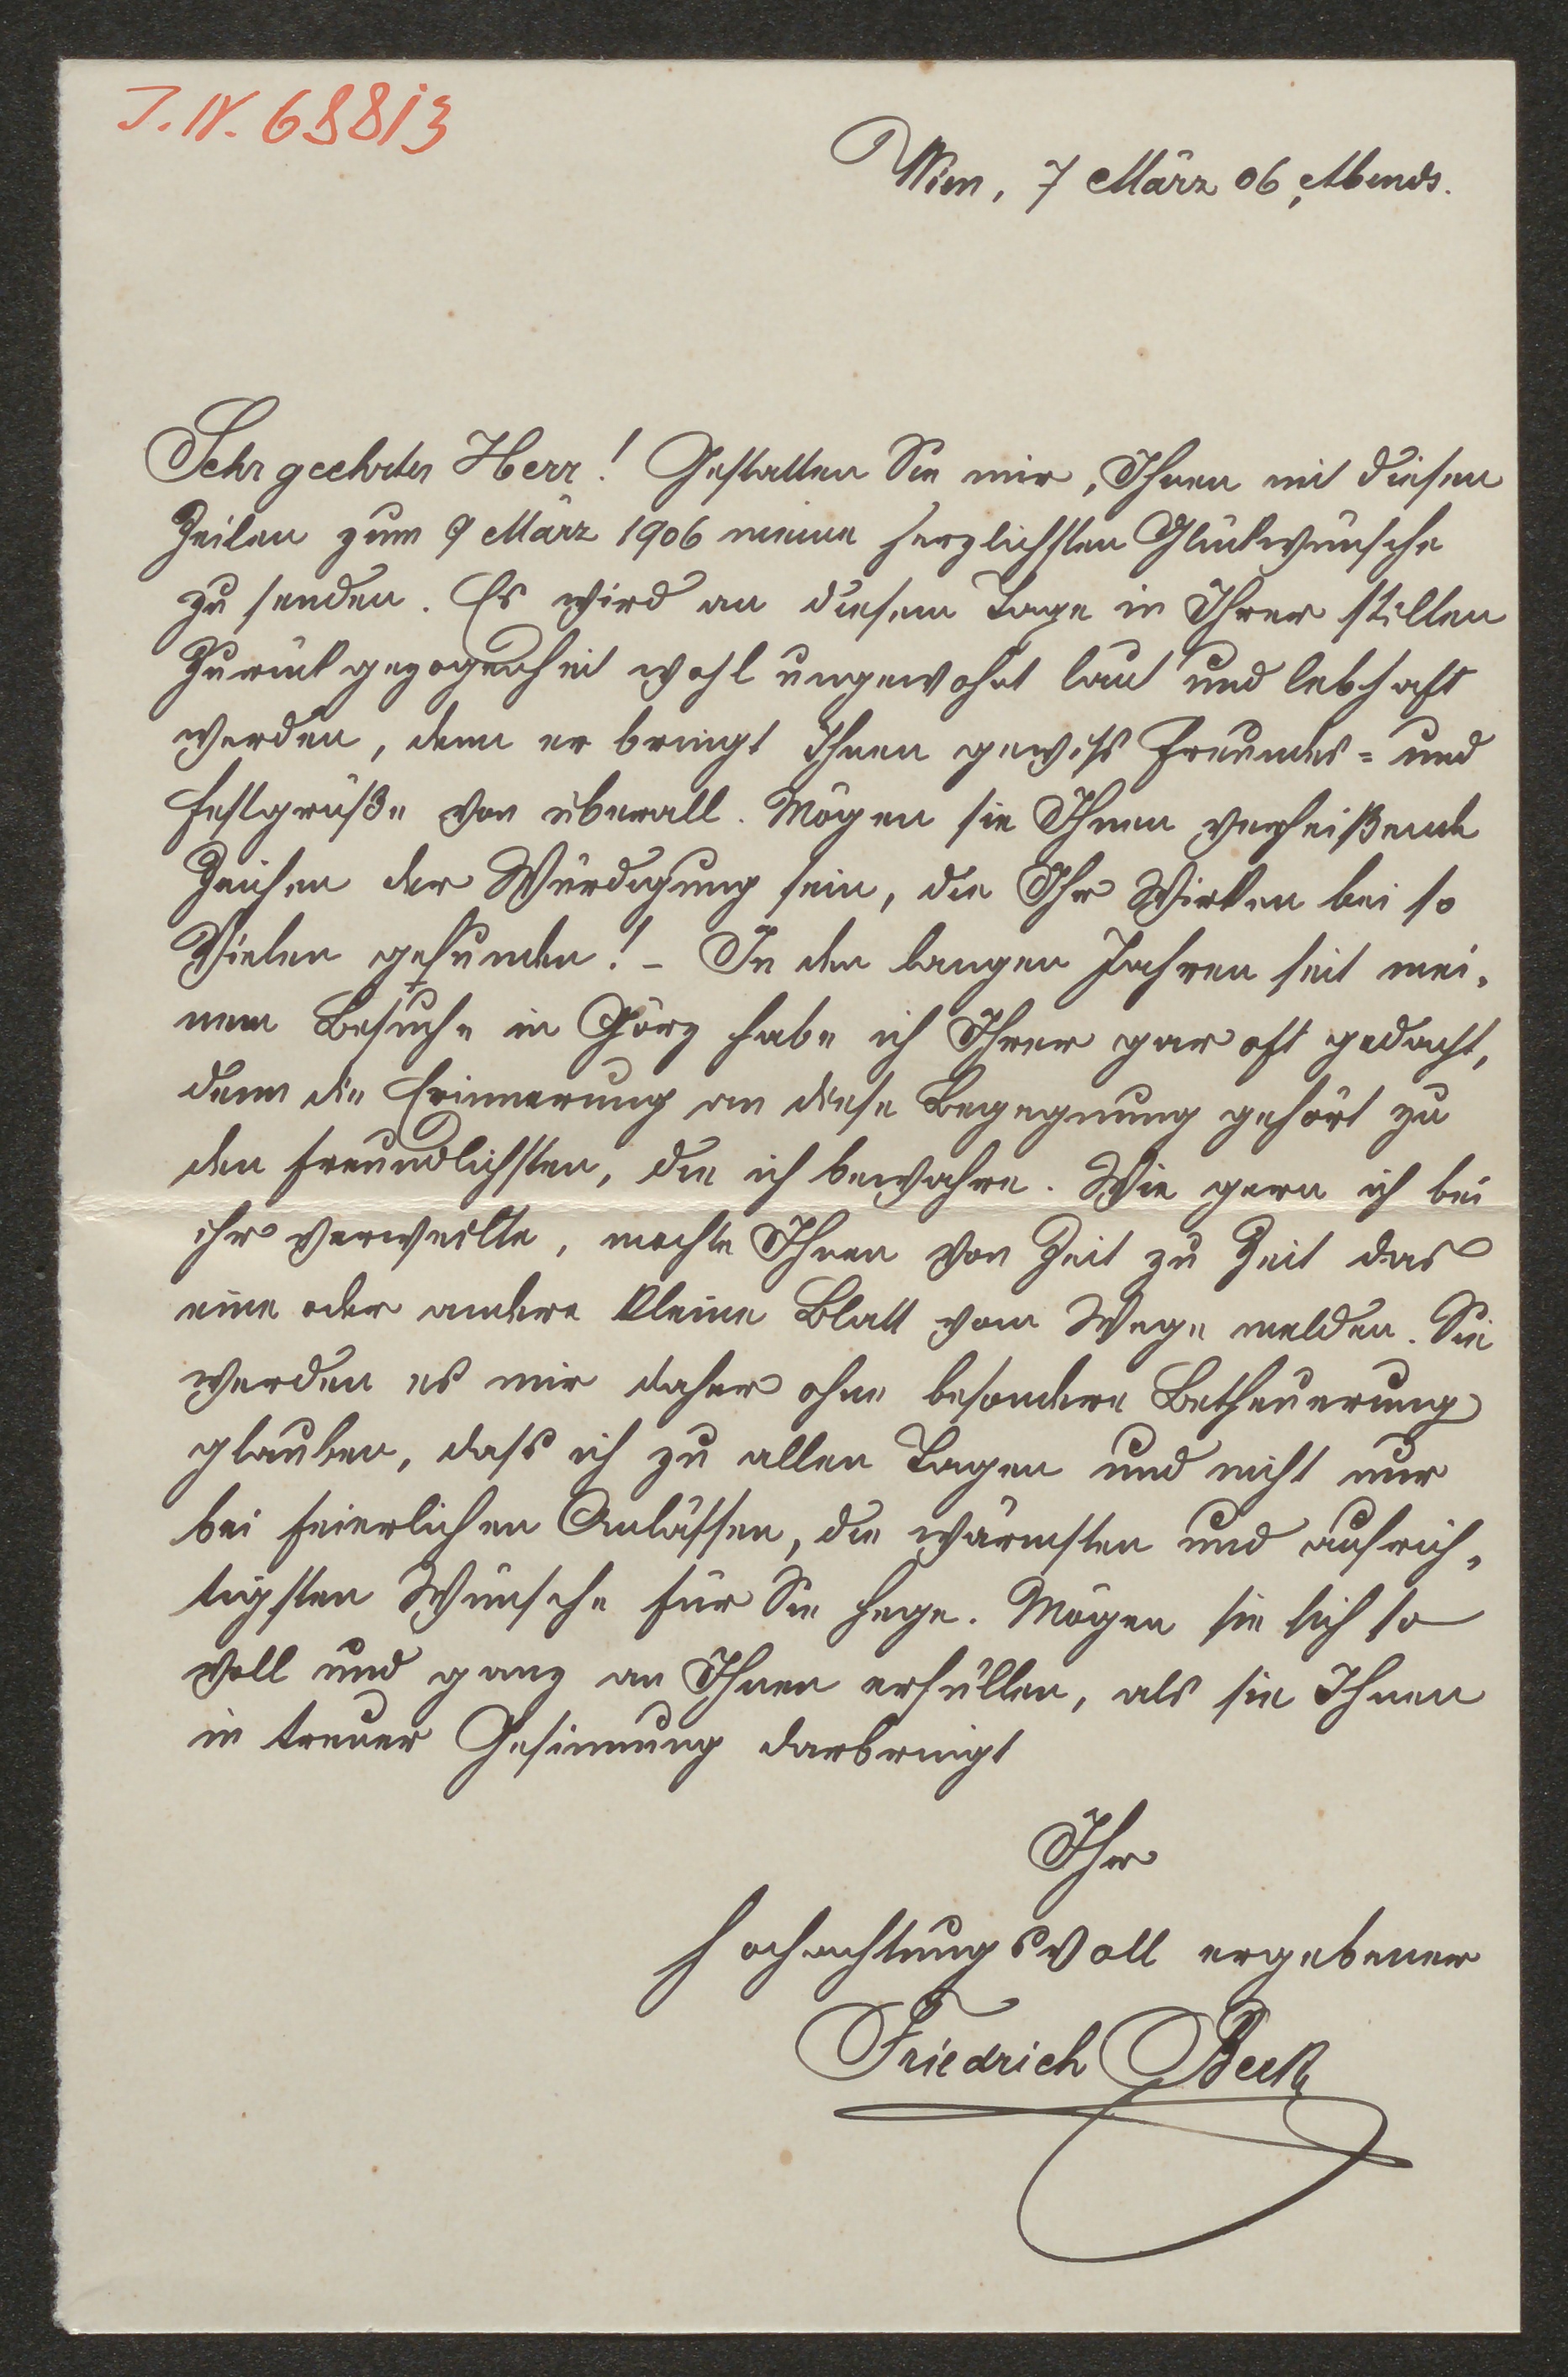 J. N. 68813
Wien, 7 März 06, Abends.
Sehr geehrter Herr! Gestatten Sie mir, Ihnen mit diesen
Zeilen zum 9 März 1906 meine herzlichsten Glückwünsche
zu senden. Es wird an diesem Tage in Ihrer stillen
Zurückgezogenheit wohl ungewohnt laut und lebhaft
werden, denn er bringt Ihnen gewiss Freundes- und
Festgrüße von überall. Mögen sie Ihnen verheißende
Zeichen der Würdigung sein, die Ihr Wirken bei so
Vielen gefunden! – In den langen Jahren seit mei-
nem Besuche in Görz habe ich Ihrer gar oft gedacht,
denn die Erinnerung an diese Begegnung gehört zu
den freundlichsten, die ich bewahre. Wie gern ich bei
ihr verweilte, mochte Ihnen von Zeit zu Zeit das
eine oder andere kleine Blatt vom Wege melden. Sie
werden es mir daher ohne besondere Betheuerung
glauben, dass ich zu allen Tagen und nicht nur
bei feierlichen Anlässen, die wärmsten und aufrich-
tigsten Wünsche für Sie hege. Mögen sie sich so
voll und ganz an Ihnen erfüllen, als sie Ihnen
in treuer Gesinnung darbringt
Ihr
hochachtungsvoll ergebener
Friedrich Beck